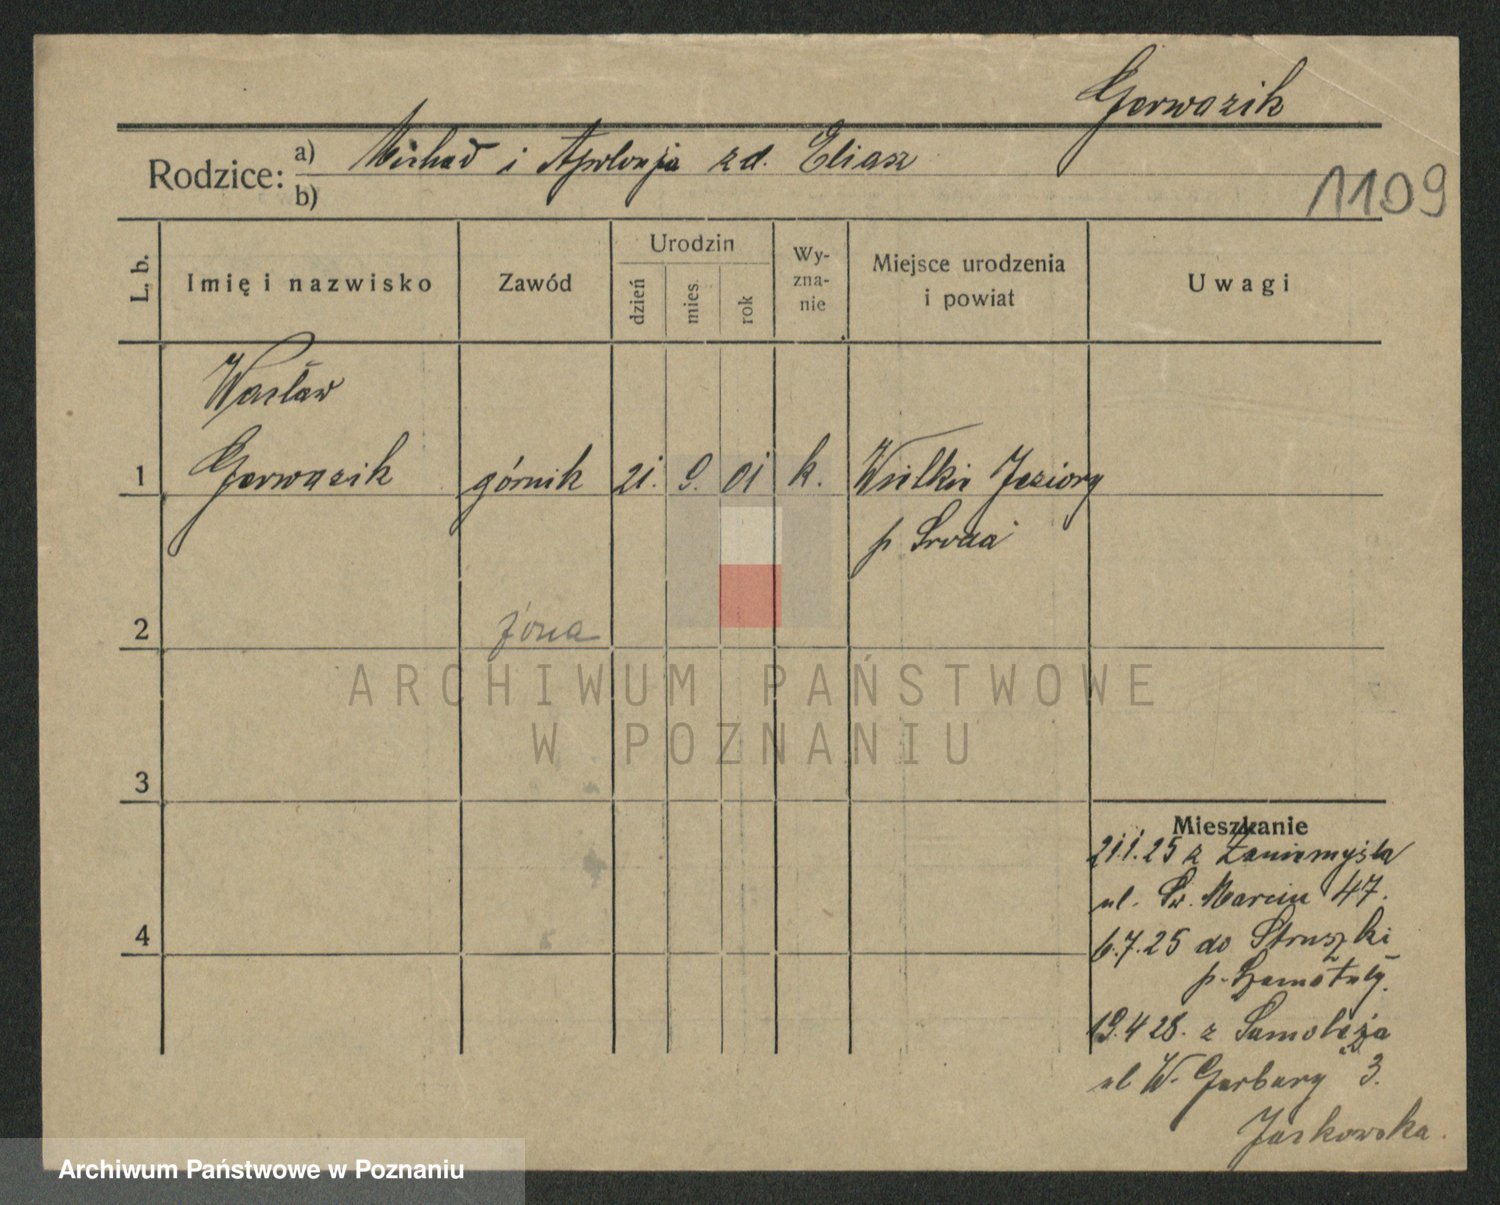 Gerwazik
Rodzice: a) Michał i Apolonja z d. Eliasz
b)
1109
L. b.
Imię i nazwisko
Zawód
Urodzin
dzień
mies.
rok
Wy-
zna-
nie
Miejsce urodzenia
i powiat
Uwagi
Wacław
1 Gerwazik górnik 21. 9. 01 k. Wielkie Jeziory
p Środa
2 żona
ARCHIWUM PAŃSTWOWE
W POZNANIU
3
Mieszkanie
21.1.25 z Zaniemyśla
ul. Św. Marcin 47.
4
6.7.25 do
p. Szamotuły.
19.4 28. z
ul W. Garbary 3.
Jackowska.
Archiwum Państwowe w Poznaniu